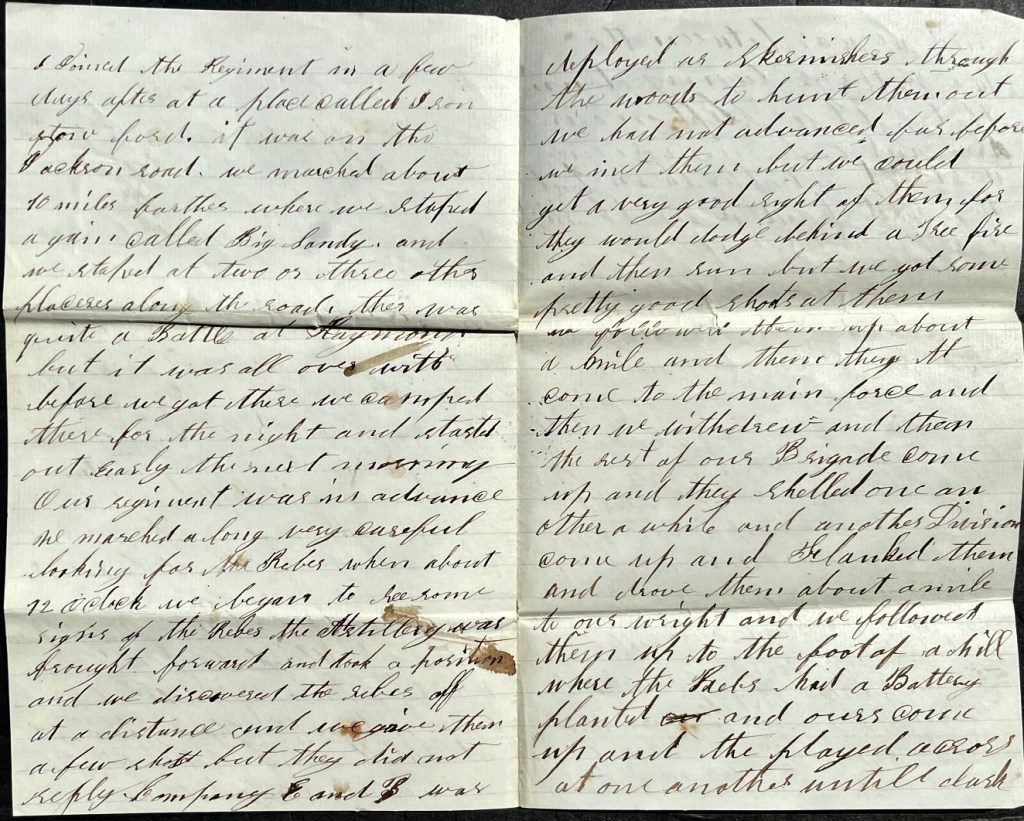 I Joined the Regiment in a few
days after at a place called Iron
ford. it was on the
Jackson road. we marched about
10 miles farther where we stoped
again called Big Sandy. and
we stoped at two or three other
placeses along the road. ther was
quite a Battle at Raymond
but it was all over with
before we got there we camped
there for the night and started
out early the next morning
Our regiment was in advance
we marched along very careful
looking for the Rebes when about
12 oclock we began to see some
signs of the Rebes the Artillery was
brought forward and took a position
and we discovered the rebes off
at a distance and we give them
a few shott but they did not
reply Company E and B was
deployed as Skermishers through
the woods to hunt them out
we had not advanced far before
we met them but we could
get a very good sight of them for
they would dodge behind a Tree fire
and then run but we got some
pretty good shots at them
we them up about
a Mile and then they
come to the main force and
then we withdrew and then
the rest of our Brigade come
up and they shelled one an
other a while and another Division
come up and Flanked them
and drove them about a mile
to our wright and we followed
them up to the foot of a hill
where the Rebs had a Battery
planted and ours come
up and the played across
at one another untill dark